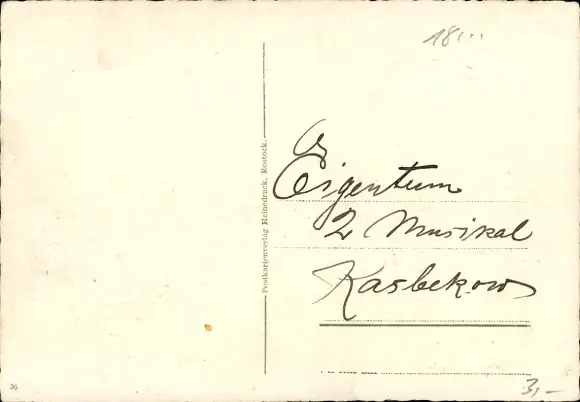 18...
Eigentum
2 Musikal
Kasbekow
Postkartenverlag Heinedruck, Rostock.
36
3,-